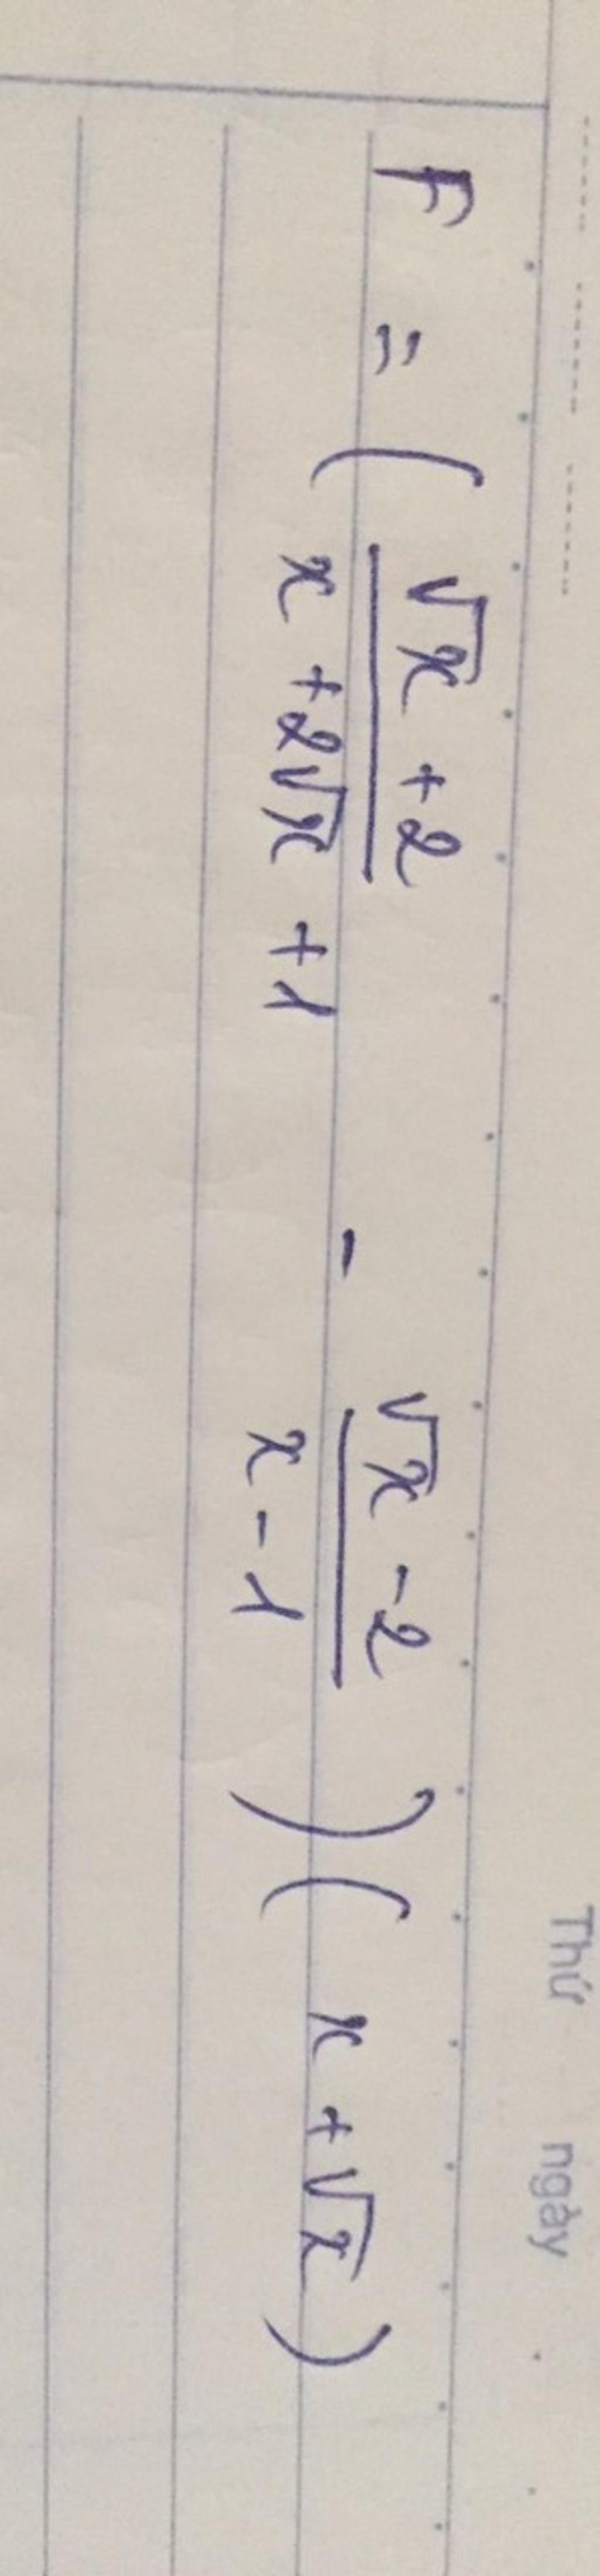 Thứ ngày
F = ( (√x + 2)/(x + 2√x + 1) - (√x - 2)/(x - 1) ) ( x + √x )